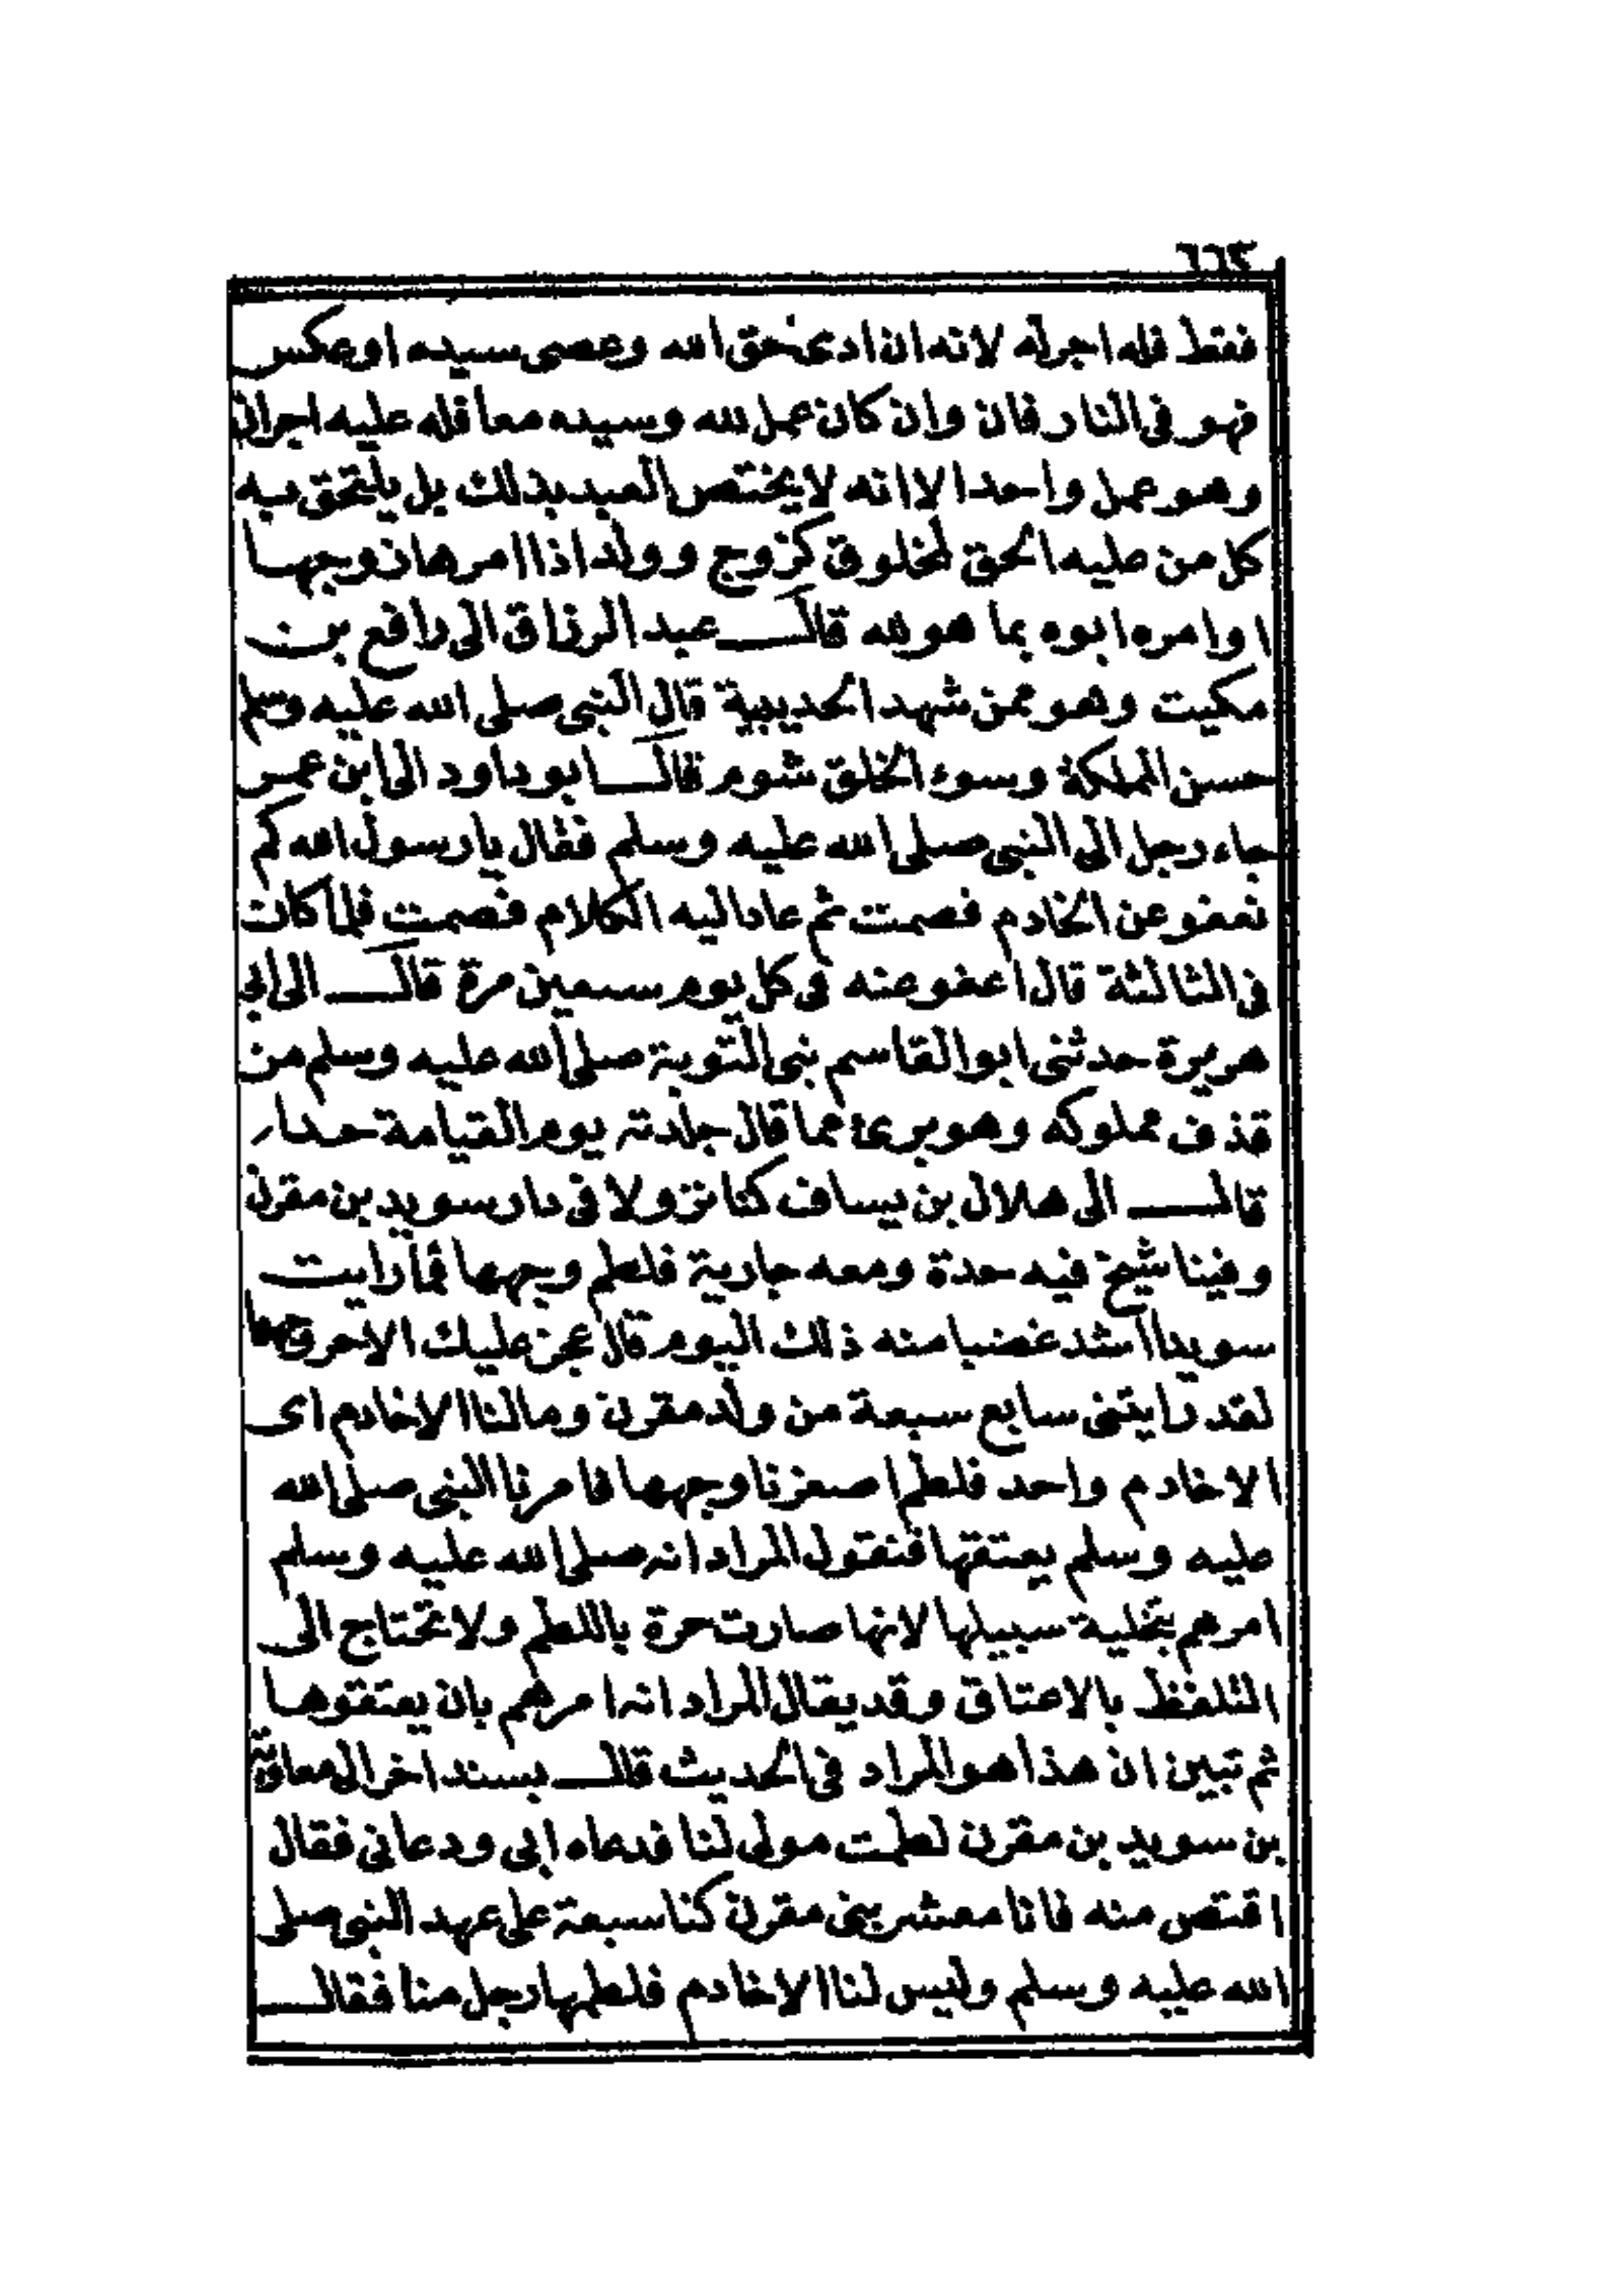 ٦٦٤
فقط فله اجر له لانه ان ادى بحق الله وعصى سيده او عكس
فهو فى النار فان وان كان عمل لله وسيده معا فله عليه اجران
وهو عمل واحد الا انه لا يختص العبد بذلك بل يلتحق به
كل من عليه الحق لمخلوق كزوج وولد اذا امر ها زوجها
او امره ابوه بما هو لله قال عبد الرزاق الى رافع بن
مكيت وهو ممن شهد الحديبية قال النبى صلى الله عليه وسلم
حسن الملكة وسوء الخلق شوم قال ابو داود الى ابن عمر
جاء رجل الى النبى صلى الله عليه وسلم فقال يا رسول الله كم
نعفو عن الخادم فصمت ثم عاد اليه الكلام فصمت فلما كان
فى الثالثة قال اعفو عنه فى كل يوم سبعين مرة قال الى ابى
هريرة حدثنى ابو القاسم نبى التوبة صلى الله عليه وسلم من
قذف مملوكه وهو برئ مما قال جلد له يوم القيامة حدا
قال الى هلال بن يساف كنا نزولا فى دار سويد بن مقرن
وفينا شيخ فيه حدة ومعه جارية فلطم وجهها فما رايت
سويدا اشد غضبا منه ذلك اليوم قال عجز عليك الا حر وجهها
لقد رايتنى سابع سبعة من ولد مقرن وما لنا الا خادم اى
الا خادم واحد فلطم اصغرنا وجهها فامرنا النبى صلى الله
عليه وسلم بعتقها فنقول المراد انه صلى الله عليه وسلم
امرهم بتخلية سبيلها لانها صارت حرة باللطم ولا تحتاج الى
التلفظ بالاعتاق وقد يقال المراد انه امرهم بان يعتقوها
ثم تبين ان هذا هو المراد فى الحديث قال بسند اخر الى معاوية
بن سويد بن مقرن لطمت مولى لنا فدعاه ابى ودعانى فقال
اقتص منه فانا معشر بنى مقرن كنا سبعة على عهد النبى صلى
الله عليه وسلم وليس لنا الا خادم فلطمها رجل منا فقال